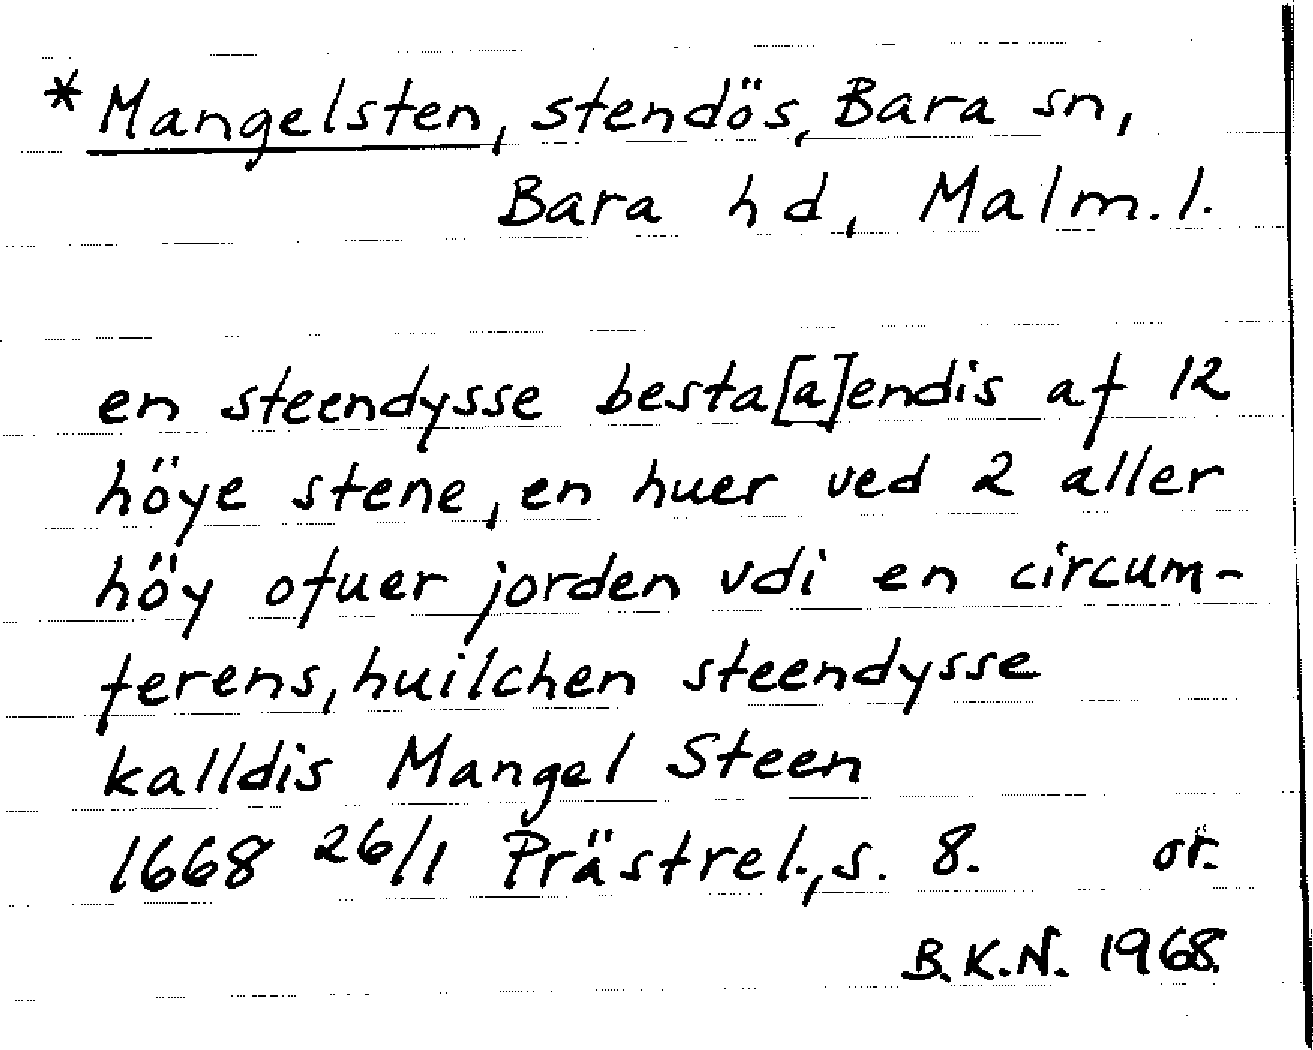 * Mangelsten, stendös, Bara sn,
Bara hd, Malm. l.
en steendysse besta[a]endis af 12
höye stene, en huer ved 2 aller
höy ofuer jorden vdi en circum-
ferens, huilchen steendysse
kalldis Mangel Steen
1668 26/1 Prästrel., s. 8. or.
B.K.N. 1968.